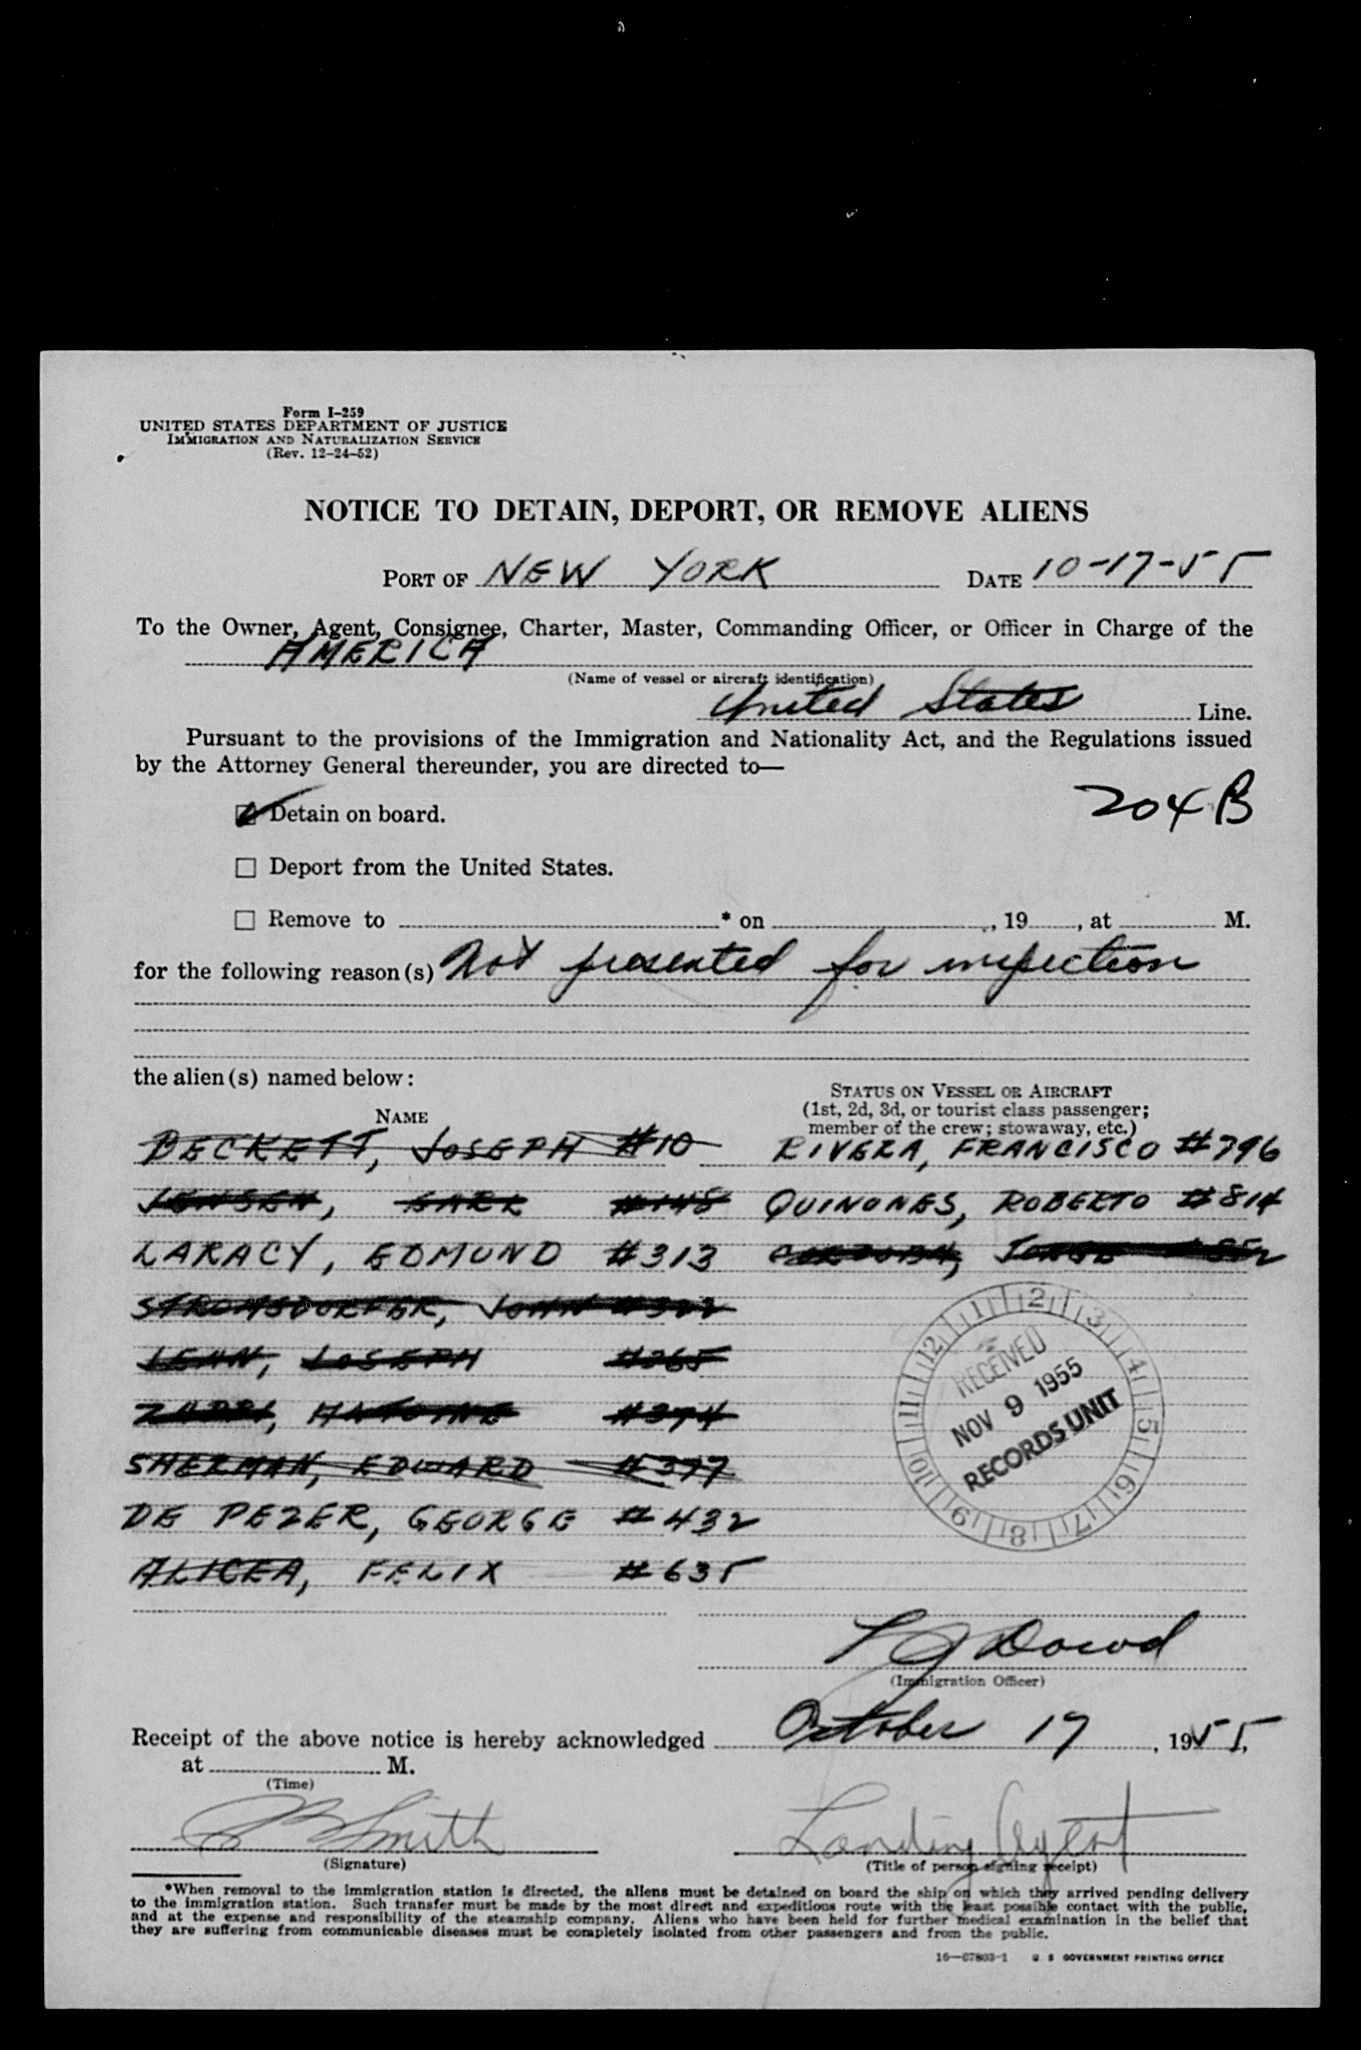 Form I-259
UNITED STATES DEPARTMENT OF JUSTICE
IMMIGRATION AND NATURALIZATION SERVICE
(Rev. 12-24-52)
NOTICE TO DETAIN, DEPORT, OR REMOVE ALIENS
PORT OF NEW YORK DATE 10-17-55
To the Owner, Agent, Consignee, Charter, Master, Commanding Officer, or Officer in Charge of the
AMERICA
(Name of vessel or aircraft identification)
United States Line.
Pursuant to the provisions of the Immigration and Nationality Act, and the Regulations issued
by the Attorney General thereunder, you are directed to—
Detain on board.
204 B
Deport from the United States.
Remove to * on , 19 , at M.
for the following reason(s) Not presented for inspection
the alien(s) named below:
STATUS ON VESSEL OR AIRCRAFT
(1st, 2d, 3d, or tourist class passenger;
member of the crew; stowaway, etc.)
NAME
BECKETT, JOSEPH #10 RIVERA, FRANCISCO #796
JENSEN, #148 QUINONES, ROBERTO #814
LARACY, EDMUND #313 JORGE #852
STROMSDORFER, JOHN #322
JOSEPH #365
#374
SHERMAN, EDWARD #377
DE PEZER, GEORGE #432
ALICEA, FELIX #635
RECEIVED
NOV 9 1955
RECORDS UNIT
12 1 2 3 4 5 6 7 8 9 10 11
Dowd
(Immigration Officer)
Receipt of the above notice is hereby acknowledged October 17, 1955,
at M.
(Time)
Smith Landing Agent
(Signature) (Title of person signing receipt)
*When removal to the immigration station is directed, the aliens must be detained on board the ship on which they arrived pending delivery
to the immigration station. Such transfer must be made by the most direct and expeditious route with the least possible contact with the public,
and at the expense and responsibility of the steamship company. Aliens who have been held for further medical examination in the belief that
they are suffering from communicable diseases must be completely isolated from other passengers and from the public.
16—67803-1 U. S. GOVERNMENT PRINTING OFFICE